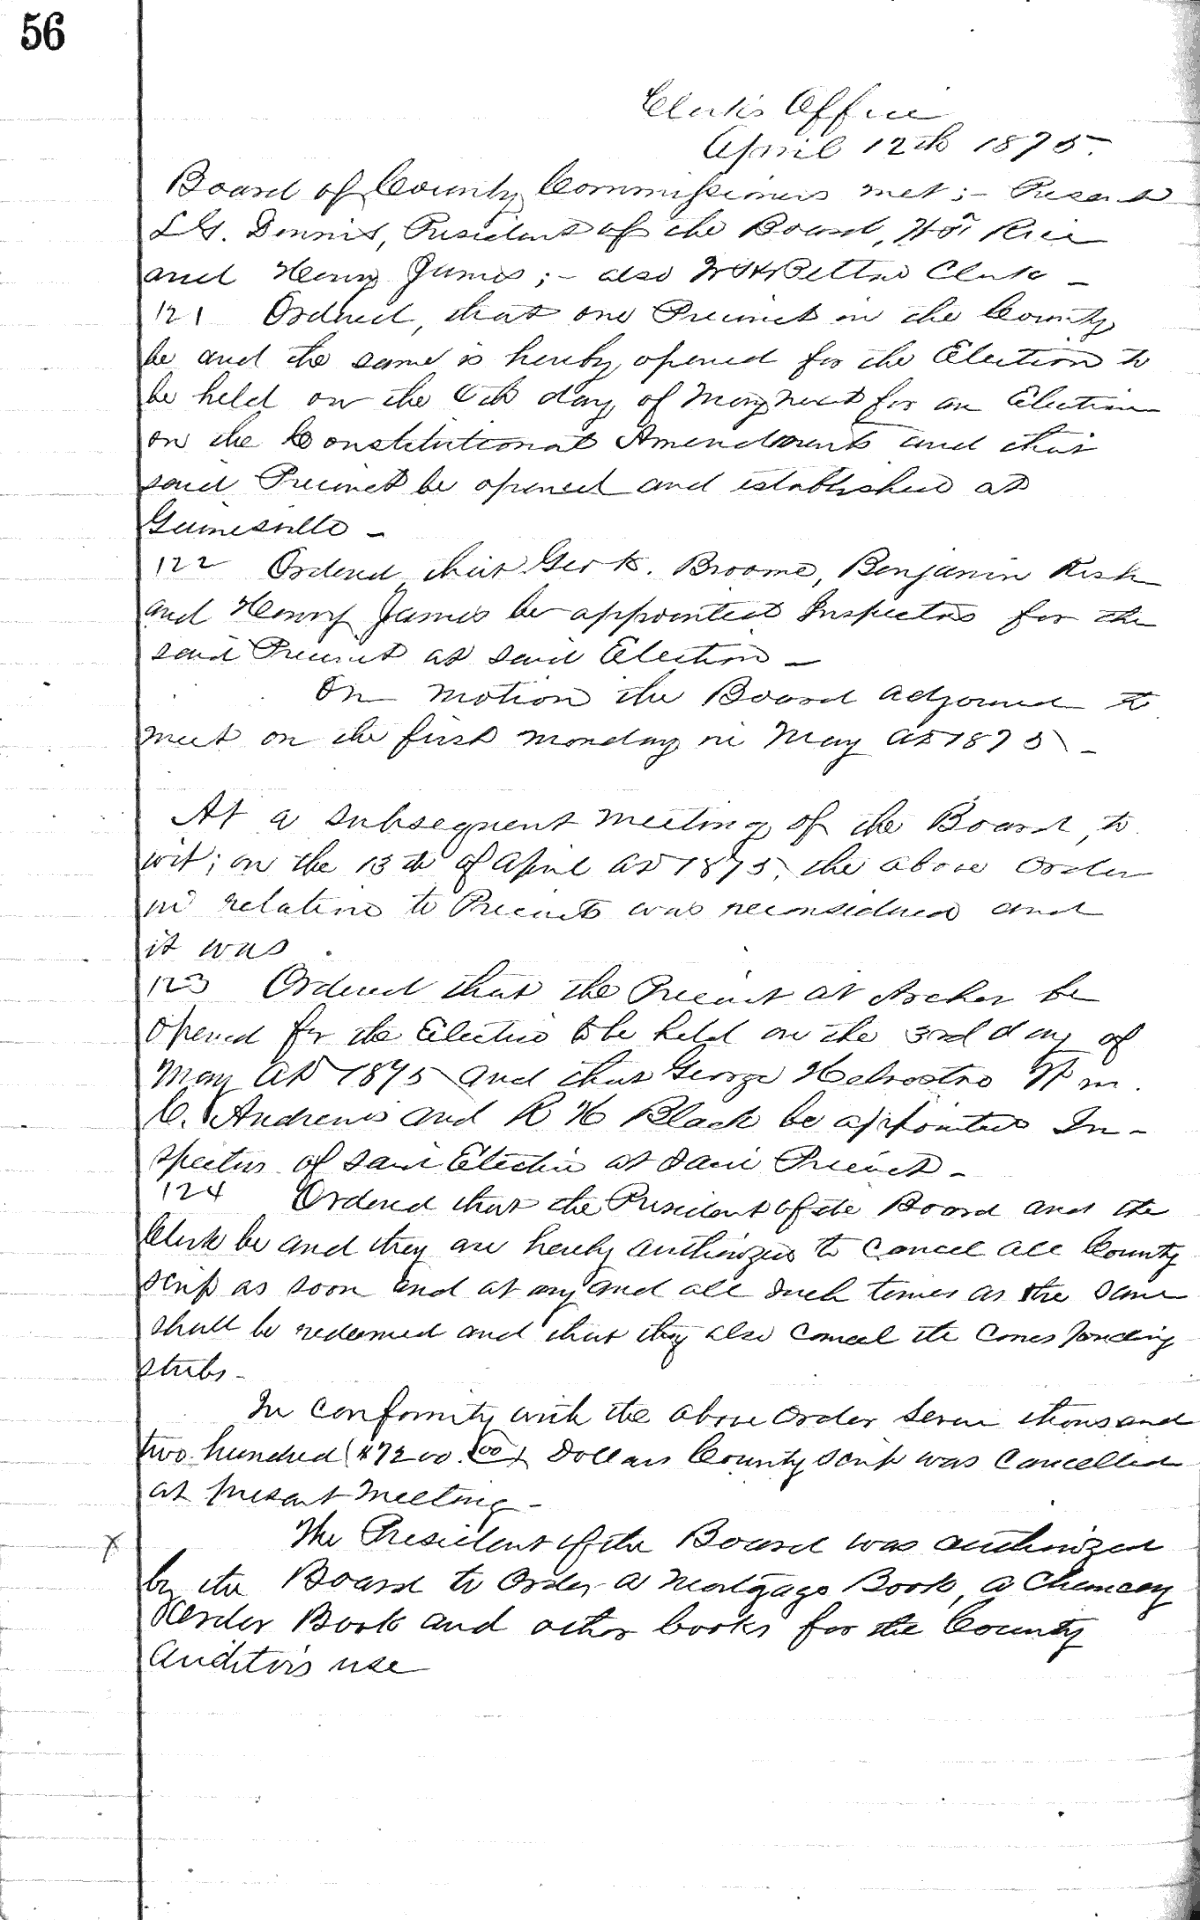 56
Clerk's Office
April 12th 1875.
Board of County Commissioners met; – Present
L G. Dennis, President of the Board, Rice
and Henry James; – also Clerk –
121 Ordered, that one Precinct in the County
be and the same is hereby opened for the Election to
be held on the day of May next for an Election
on the Constitutional Amendments and that
said Precinct be opened and established at
Gainesville –
122 Ordered that Geo K. Broome, Benjamin Rush
and Henry James be appointed Inspectors for the
said Precinct at said Election –
On motion the Board adjourned to
meet on the first Monday in May AD 1875 –
At a subsequent meeting of the Board, to
wit; on the 13th of April AD 1875, the above order
in relation to Precincts was reconsidered and
it was
123 Ordered that the Precinct at Archer be
opened for the Election to be held on the 3rd day of
May AD 1875 and that George Wm.
C. Andrews and R H Black be appointed In-
spectors of said Election at said Precinct –
124 Ordered that the President of the Board and the
Clerk be and they are hereby authorized to cancel all County
scrip as soon and at any and all such times as the same
shall be redeemed and that they also cancel the corresponding
stubs –
In conformity with the above order seven thousand
two hundred ($7200.00) Dollars County scrip was cancelled
at present meeting –
x The President of the Board was authorized
by the Board to order a Mortgage Book, a Chancery
Order Book and other books for the County
Auditor's use